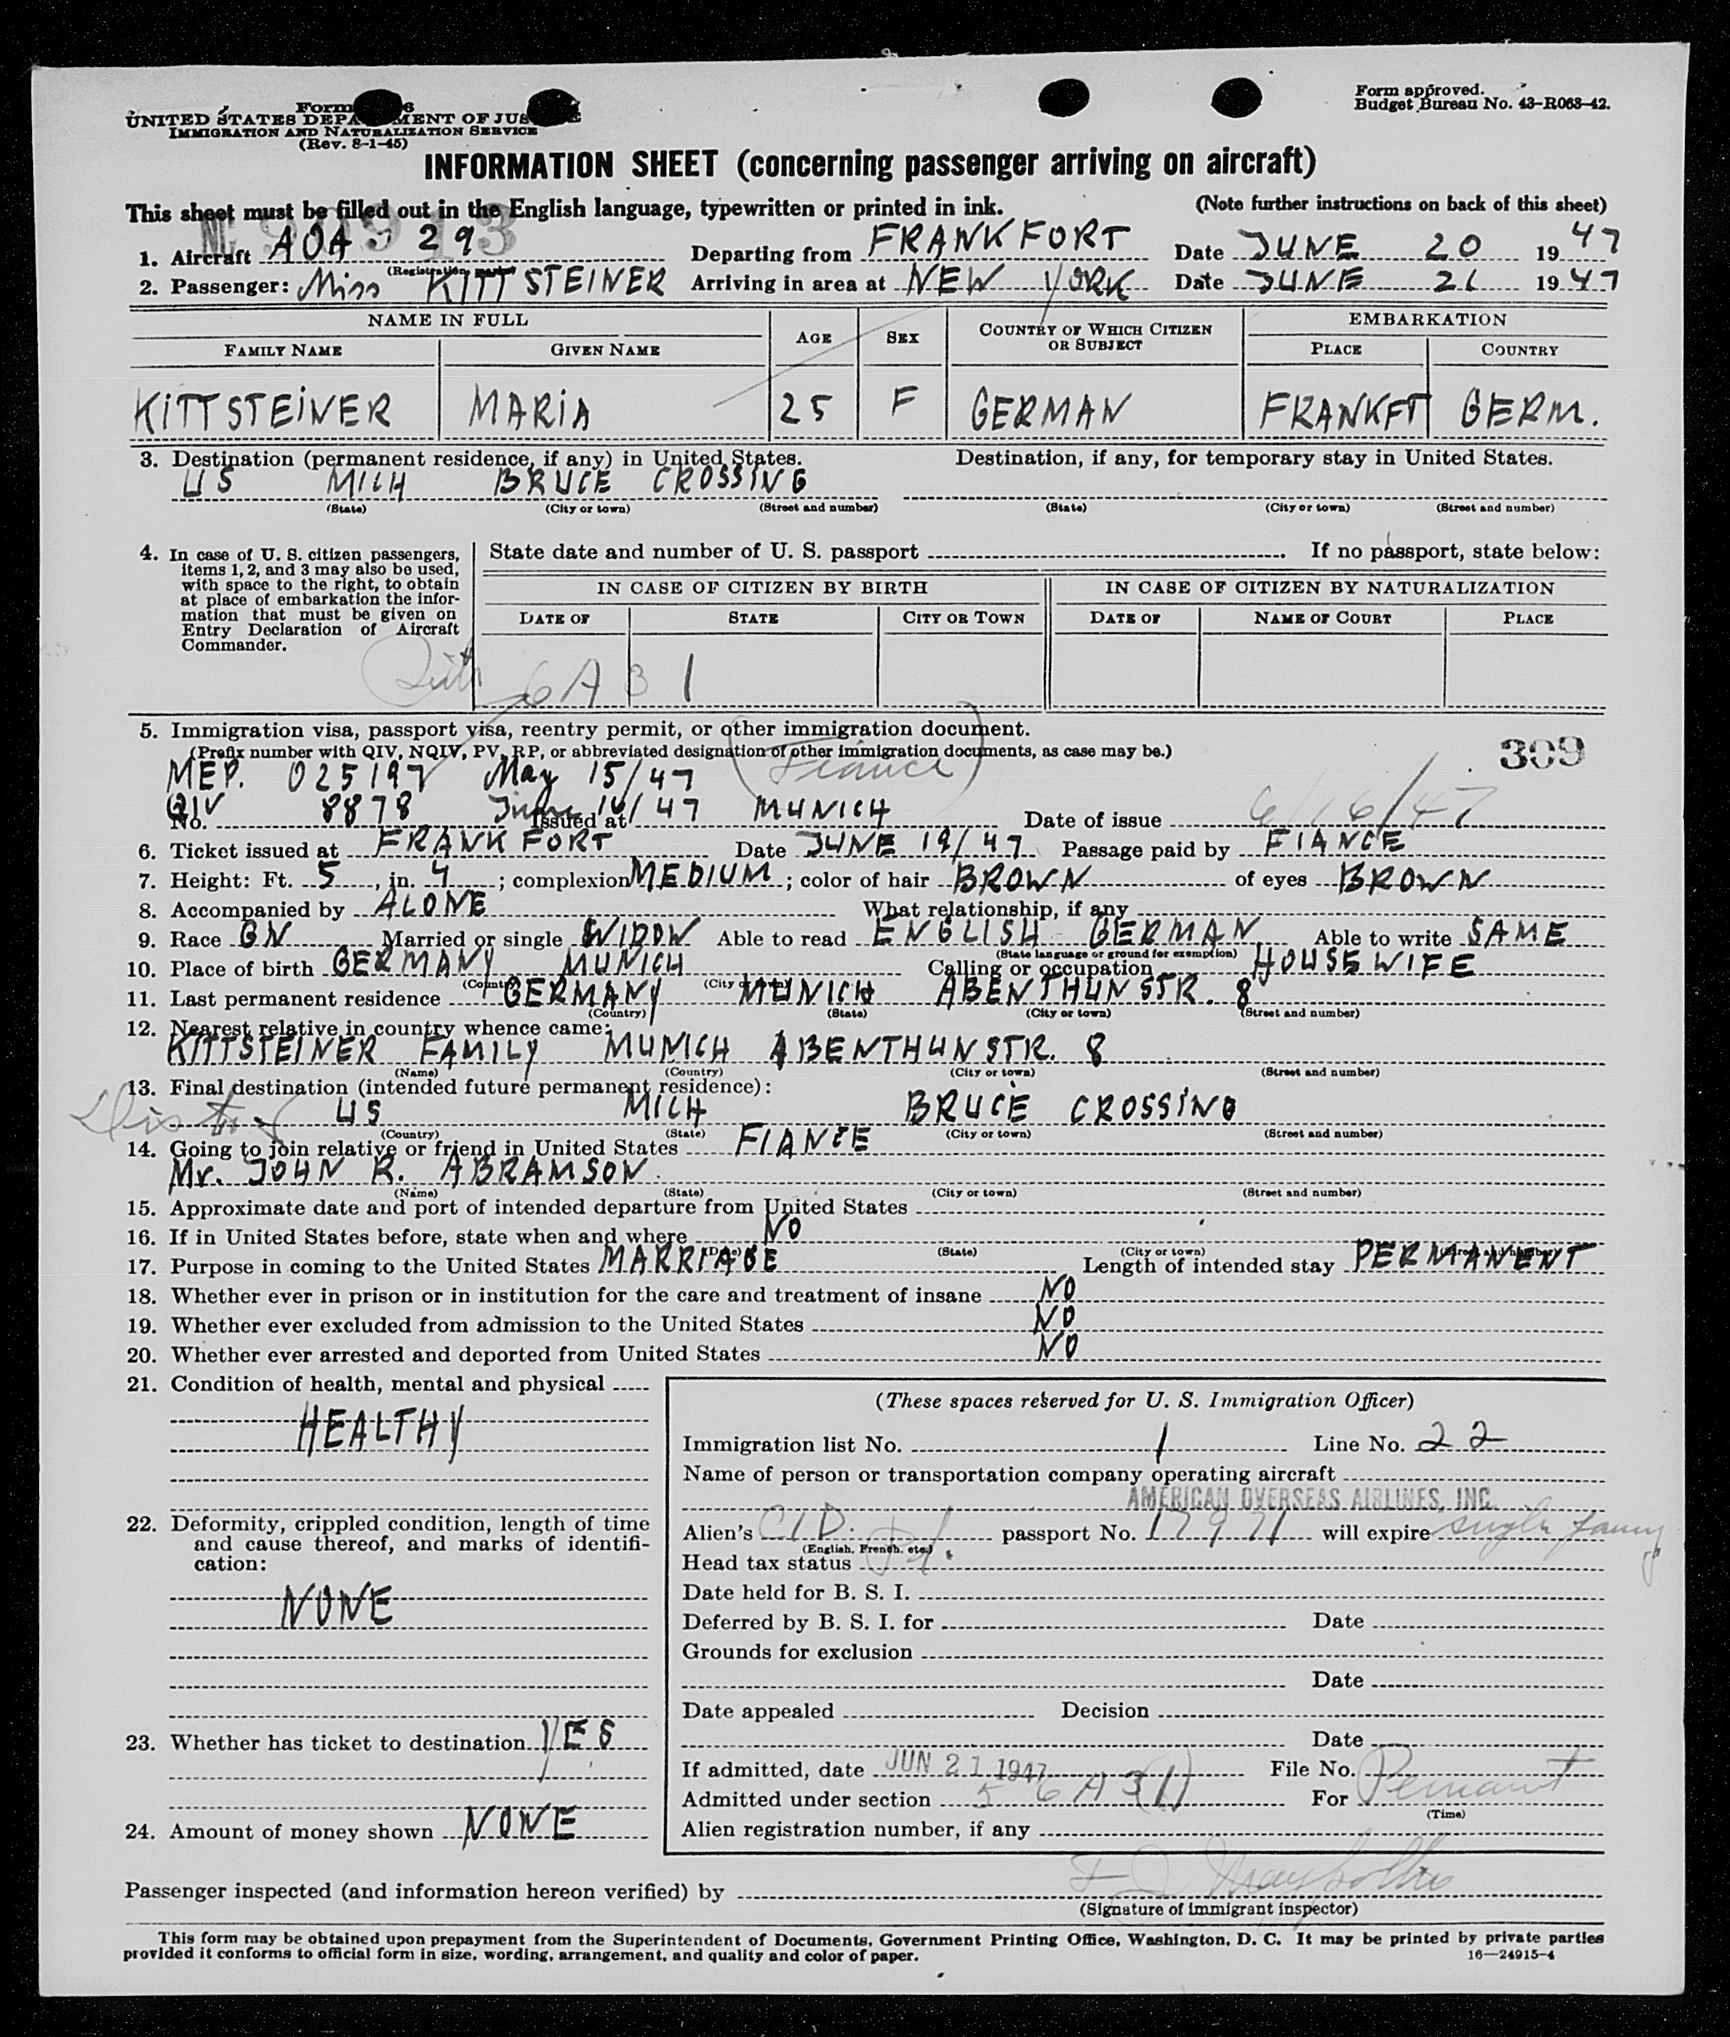 Form 6
UNITED STATES DEPARTMENT OF JUS
IMMIGRATION AND NATURALIZATION SERVICE
(Rev. 8-1-45)
Form approved.
Budget Bureau No. 43-R063-42.
INFORMATION SHEET (concerning passenger arriving on aircraft)
This sheet must be filled out in the English language, typewritten or printed in ink. (Note further instructions on back of this sheet)
1. Aircraft AOA - 29 Departing from FRANKFORT Date JUNE 20 1947
(Registration marks)
2. Passenger: Miss KITTSTEINER Arriving in area at NEW YORK Date JUNE 21 1947
NAME IN FULL AGE SEX COUNTRY OF WHICH CITIZEN OR SUBJECT EMBARKATION
FAMILY NAME GIVEN NAME PLACE COUNTRY
KITTSTEINER MARIA 25 F GERMAN FRANKFT GERM.
3. Destination (permanent residence, if any) in United States. Destination, if any, for temporary stay in United States.
US MICH BRUCE CROSSING
(State) (City or town) (Street and number) (State) (City or town) (Street and number)
4. In case of U. S. citizen passengers,
items 1, 2, and 3 may also be used,
with space to the right, to obtain
at place of embarkation the infor-
mation that must be given on
Entry Declaration of Aircraft
Commander.
State date and number of U. S. passport If no passport, state below:
IN CASE OF CITIZEN BY BIRTH IN CASE OF CITIZEN BY NATURALIZATION
DATE OF STATE CITY OR TOWN DATE OF NAME OF COURT PLACE
6A 3 1
5. Immigration visa, passport visa, reentry permit, or other immigration document.
(Prefix number with QIV, NQIV, PV, RP, or abbreviated designation of other immigration documents, as case may be.)
309
MEP. 025197 May 15/47 (Fiance)
QIV 8878 June 16/47 MUNICH
No. Issued at Date of issue 6/16/47
6. Ticket issued at FRANKFORT Date JUNE 19/47 Passage paid by FIANCE
7. Height: Ft. 5, in. 4; complexion MEDIUM; color of hair BROWN of eyes BROWN
8. Accompanied by ALONE What relationship, if any
9. Race GN Married or single WIDOW Able to read ENGLISH GERMAN Able to write SAME
(State language or ground for exemption)
10. Place of birth GERMANY MUNICH Calling or occupation HOUSEWIFE
(Country) (City or town)
11. Last permanent residence GERMANY MUNICH ABENTHUNSTR. 8
(Country) (State) (City or town) (Street and number)
12. Nearest relative in country whence came:
KITTSTEINER FAMILY MUNICH ABENTHUNSTR. 8
(Name) (Country) (City or town) (Street and number)
13. Final destination (intended future permanent residence):
US MICH BRUCE CROSSING
(Country) (State) (City or town) (Street and number)
14. Going to join relative or friend in United States FIANCE
Mr. JOHN R. ABRAMSON
(Name) (State) (City or town) (Street and number)
15. Approximate date and port of intended departure from United States
16. If in United States before, state when and where NO
(State) (City or town) (Street and number)
17. Purpose in coming to the United States MARRIAGE Length of intended stay PERMANENT
18. Whether ever in prison or in institution for the care and treatment of insane NO
19. Whether ever excluded from admission to the United States NO
20. Whether ever arrested and deported from United States NO
21. Condition of health, mental and physical
HEALTHY
22. Deformity, crippled condition, length of time
and cause thereof, and marks of identifi-
cation:
NONE
23. Whether has ticket to destination YES
24. Amount of money shown NONE
(These spaces reserved for U. S. Immigration Officer)
Immigration list No. 1 Line No. 22
Name of person or transportation company operating aircraft
AMERICAN OVERSEAS AIRLINES, INC.
Alien's CID. passport No. 17971 will expire
(English, French, etc.)
Head tax status Pd.
Date held for B. S. I.
Deferred by B. S. I. for Date
Grounds for exclusion
Date
Date appealed Decision
Date
If admitted, date JUN 21 1947 File No.
Admitted under section 5 6A3(1) For
(Time)
Alien registration number, if any
Passenger inspected (and information hereon verified) by
(Signature of immigrant inspector)
This form may be obtained upon prepayment from the Superintendent of Documents, Government Printing Office, Washington, D. C. It may be printed by private parties
provided it conforms to official form in size, wording, arrangement, and quality and color of paper. 16—24915-4